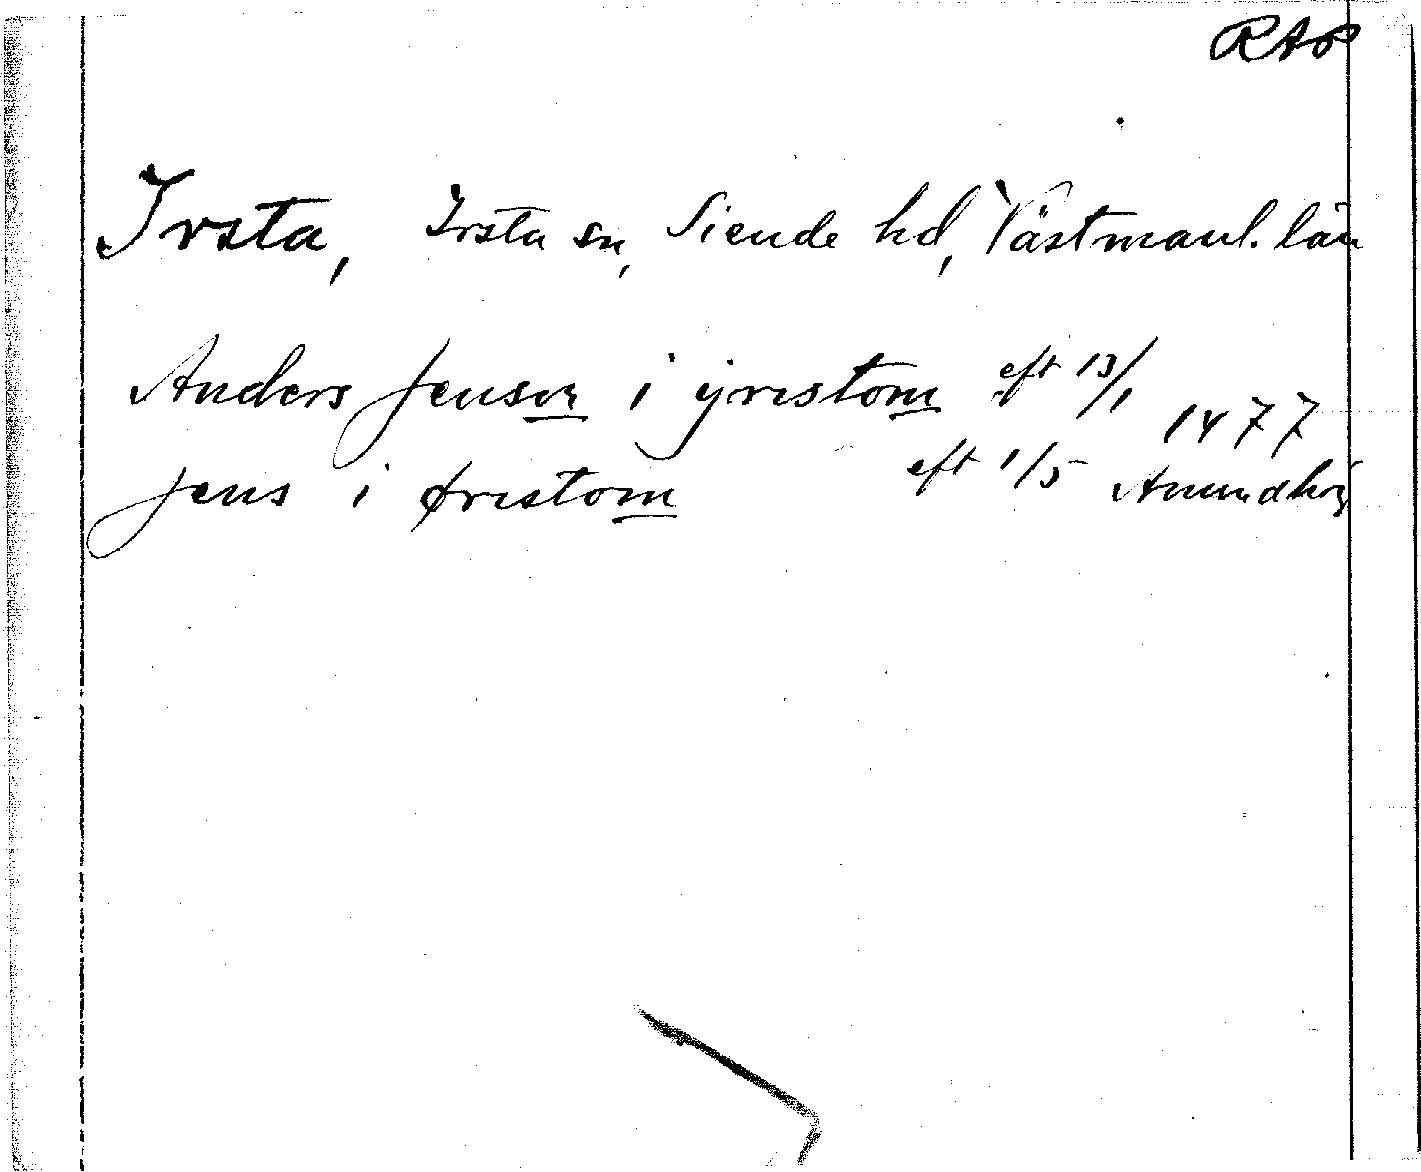 RAp
Irsta, Irsta sn, Siende hd, Västmanl. län
Anders Jenson i yrestom eft 13/1 1477
Jens i ørestom eft 1/5 Amundhög